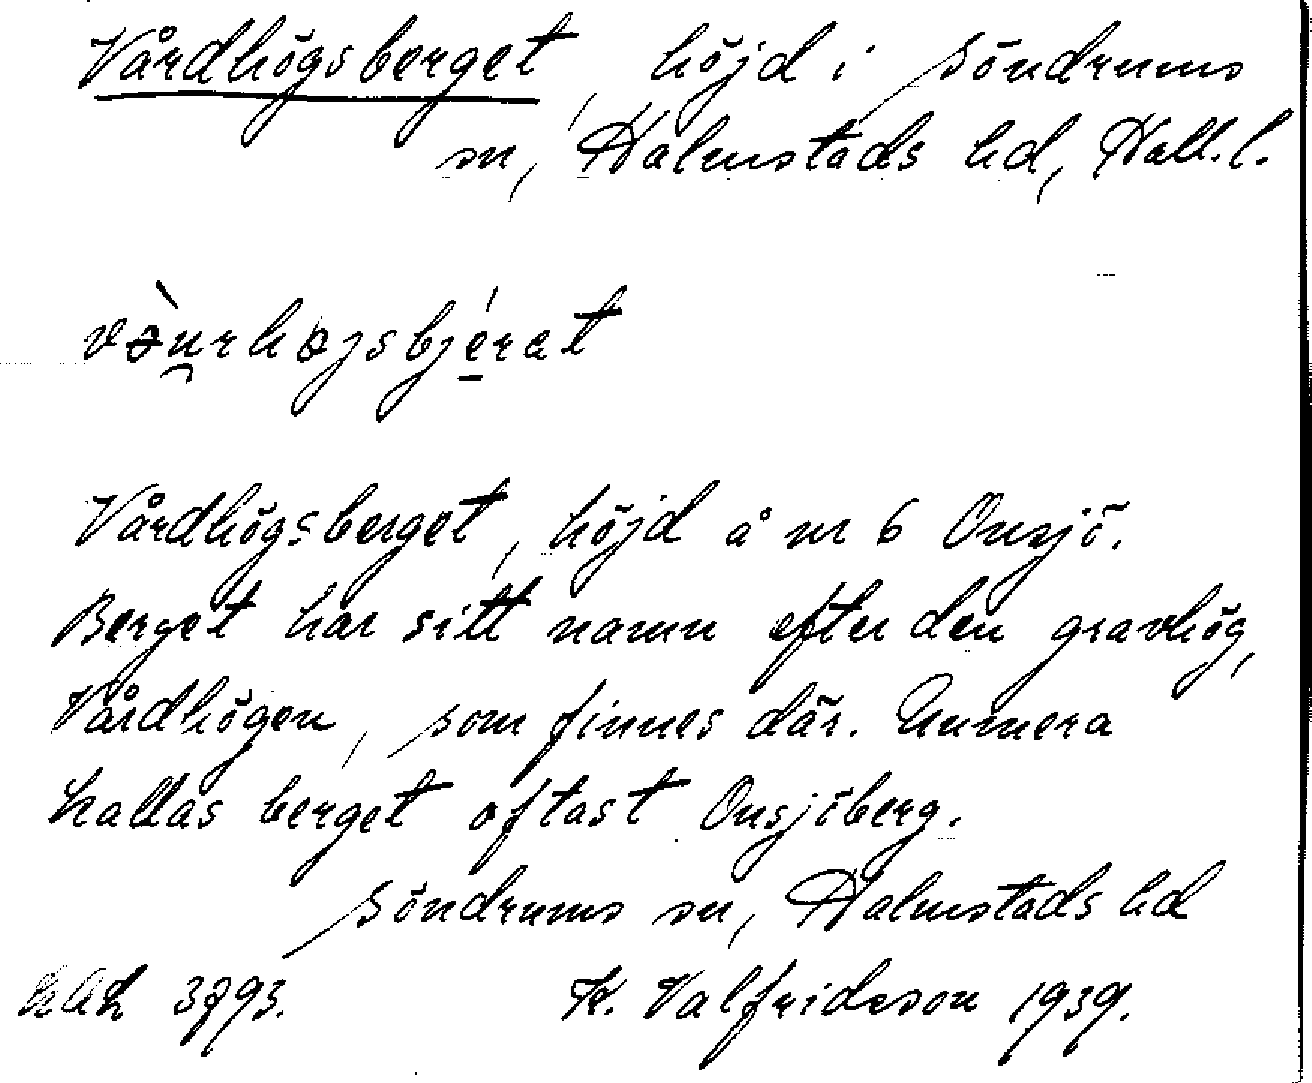 Vårdhögsberget, höjd i Söndrums
sn, Halmstads hd, Hall.l.
Vårdhögsberget, höjd å nr 6 Onsjö.
Berget har sitt namn efter den gravhög,
Vårdhögen, som finnes där. Numera
kallas berget oftast Onsjöberg.
Söndrums sn, Halmstads hd
K. Valfridsson 1939.